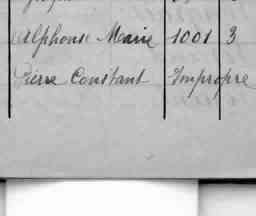 Alphonse Marie 1001 3
Pierre Constant Impropre